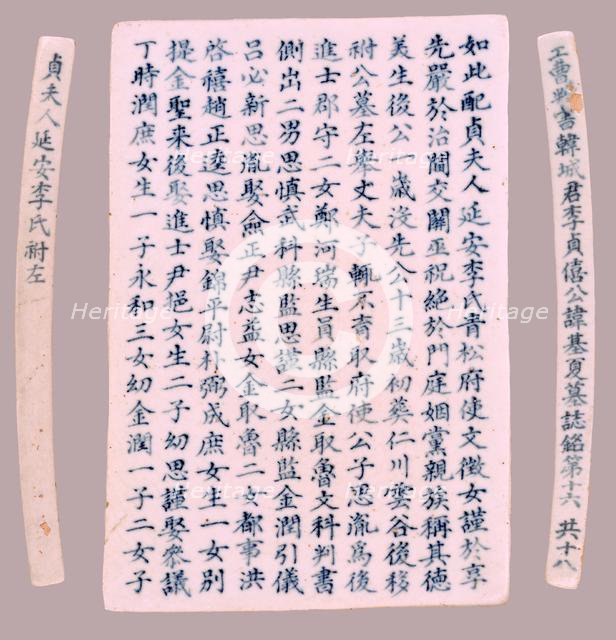 工曹判書韓城君李貞僖公諱基夏墓誌銘第十六 共十八
如此配貞夫人延安李氏青松府使文徵女謹於享
先嚴於治間交關巫祝絶於門庭姻黨親族稱其德
美生後公一歲沒先公十三歲初葬仁川雲谷後移
祔公墓左擧丈夫子輒不育取府使公子思胤爲後
進士郡守二女鄭河瑞生員縣監金取魯文科判書
側出二男思慎武科縣監思謹二女縣監金潤引儀
呂必新思胤娶僉正尹志益女金取魯二女都事洪
啓禧趙正逵思慎娶錦平尉朴弼成庶女生一女別
提金聖来後娶進士尹悒女生二子幼思謹娶叅議
丁時潤庶女生一子永和三女幼金潤一子二女子
貞夫人延安李氏祔左
Heritage
Heritage
Heritage
Heritage
Heritage
Heritage